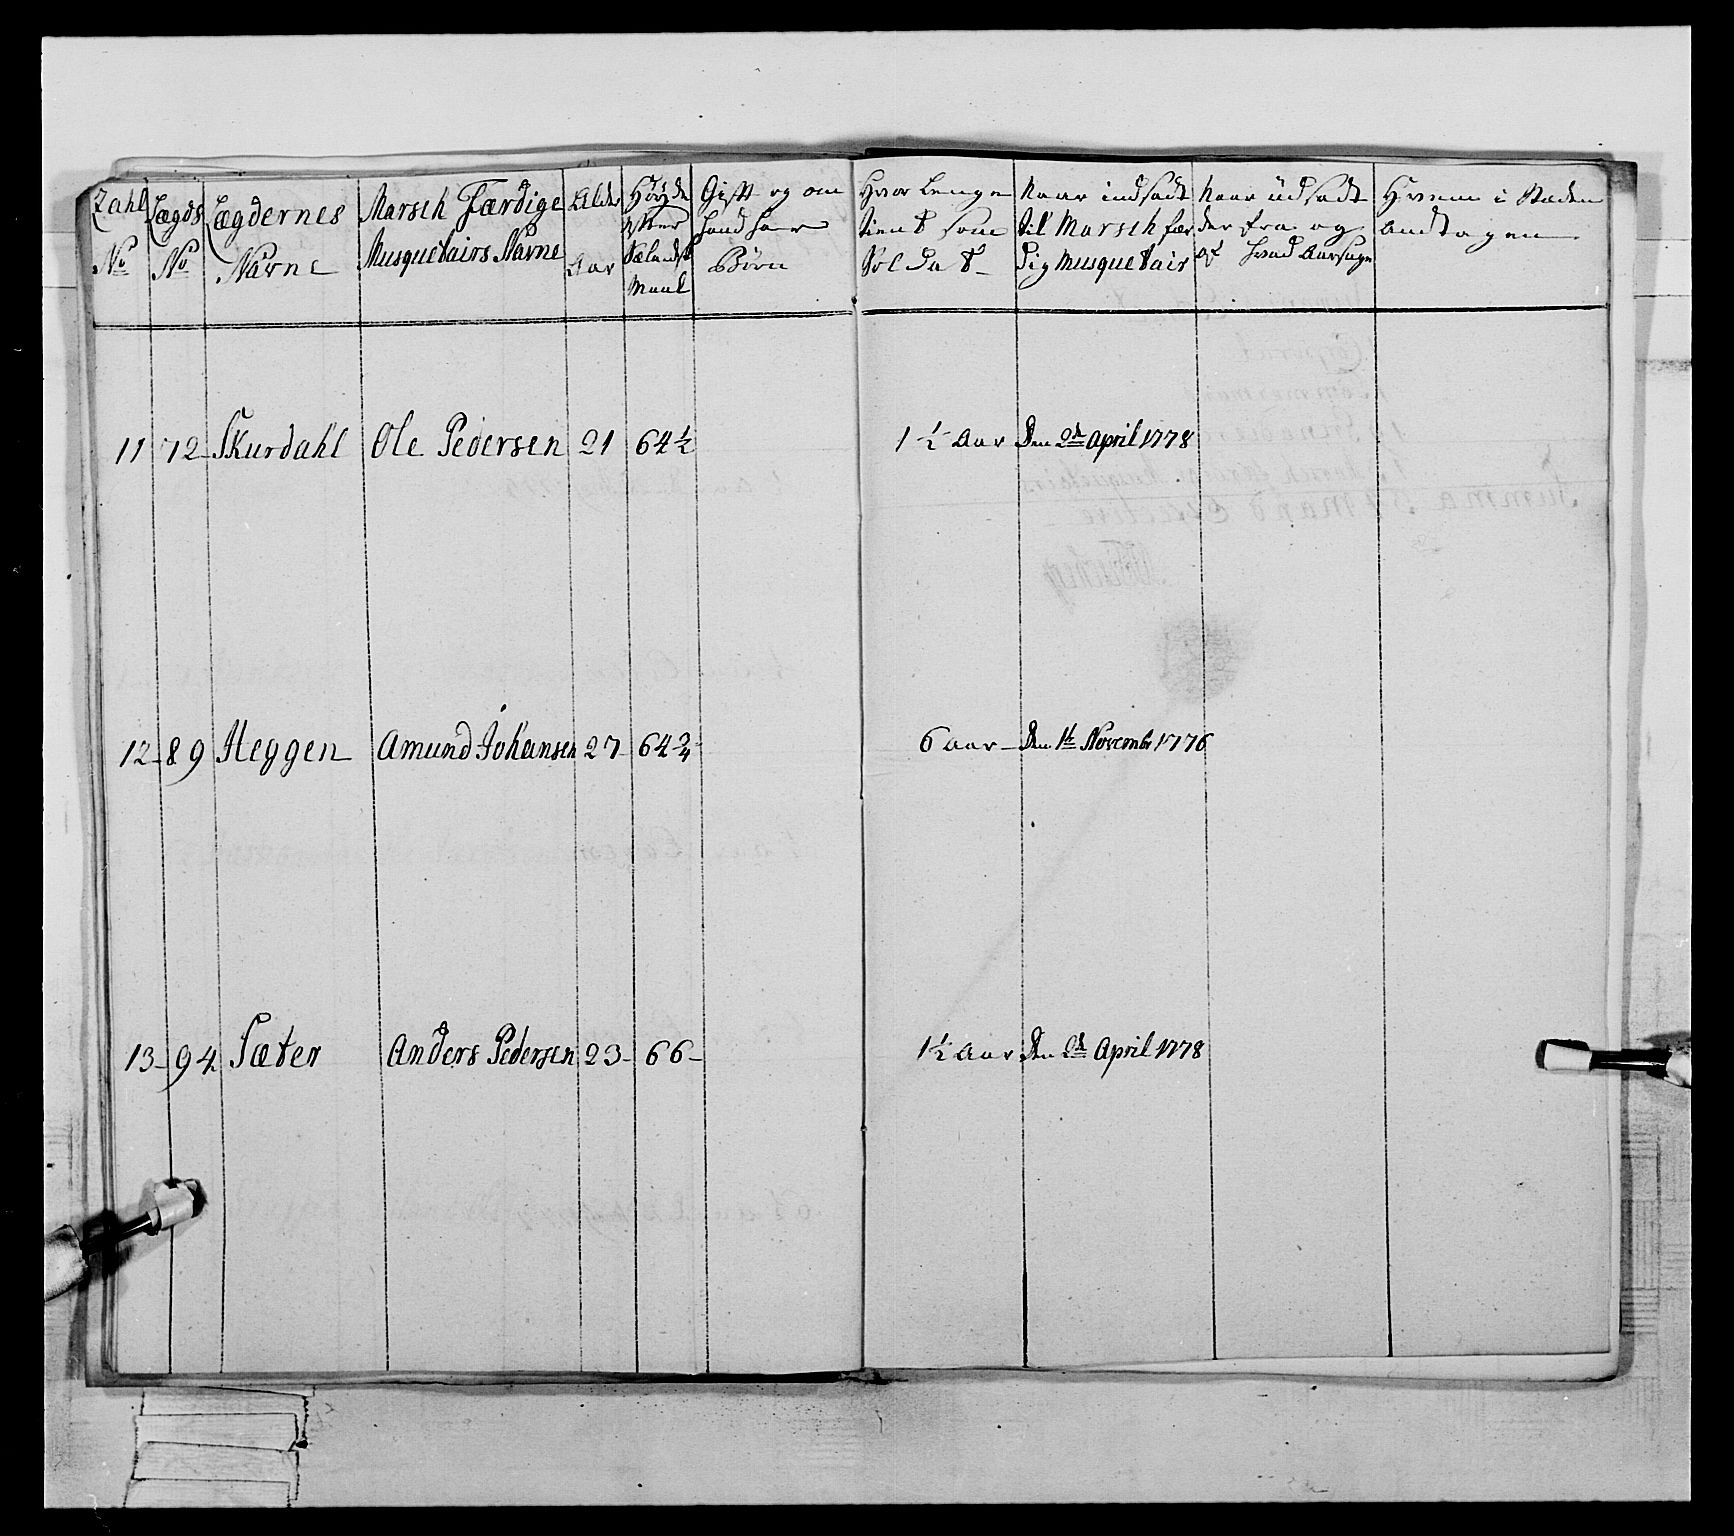 Zahl No
Lægds No
Lægdernes Navne
Marsch Færdige Musquetairs Navne
Alder Aar
Høyde efter Sælandsk Maal
Gift og om hand har Børn
Hvor Lenge tient som Soldat
Naar indsadt til Marsch færdig Musquetair
Naar udsadt der fra og af hvad Aarsage
Hvem i Stæden andtagen
11 72 Skurdahl Ole Pedersen 21 64½ 1½ Aar Den 2d April 1778
12 89 Heggen Amund Johansen 27 64¾ 6 aar Den 1t Novembr 1776
13 94 Sæter Anders Pedersen 23 66 1½ Aar Den 2d April 1778